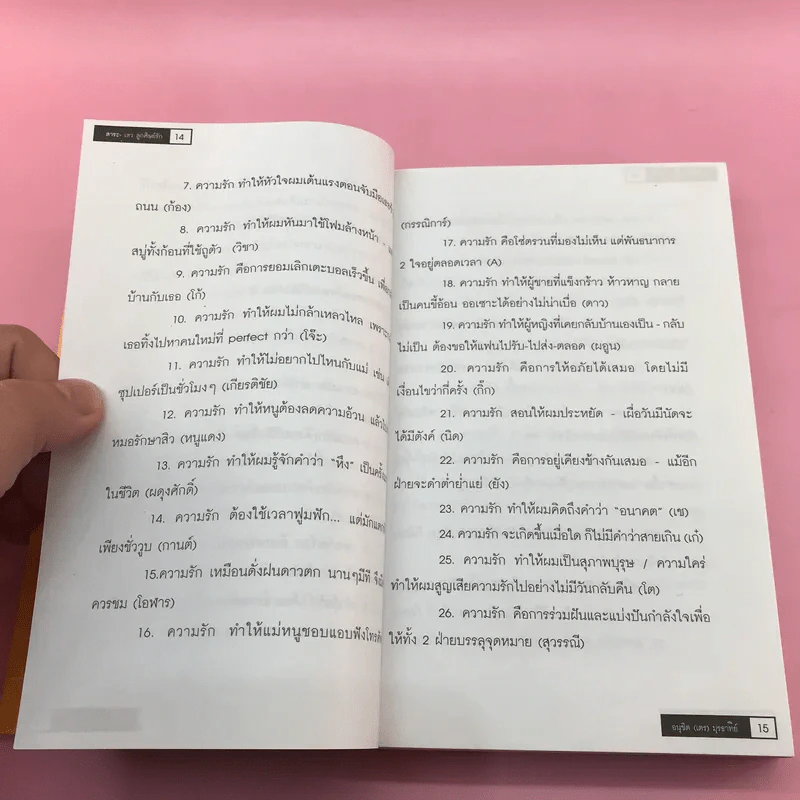 สาระ- เลว ลูกศิษย์รัก 14
7. ความรัก ทำให้หัวใจผมเต้นแรงตอนจับมือ
ถนน (ก้อง)
8. ความรัก ทำให้ผมหันมาใช้โฟมล้างหน้า -
สบู่ทั้งก้อนที่ใช้ถูตัว (วิชา)
9. ความรัก คือการยอมเลิกเตะบอลเร็วขึ้น
บ้านกับเธอ (โก้)
10. ความรัก ทำให้ผมไม่กล้าเหลวไหล เพราะ
เธอทิ้งไปหาคนใหม่ที่ perfect กว่า (โจ๊ะ)
11. ความรัก ทำให้ไม่อยากไปไหนกับแม่ เช่น
ซุปเปอร์เป็นชั่วโมงๆ (เกียรติชัย)
12. ความรัก ทำให้หนูต้องลดความอ้วน แล้ว
หมอรักษาสิว (หนูแดง)
13. ความรัก ทำให้ผมรู้จักคำว่า "หึง" เป็นครั้ง
ในชีวิต (ผดุงศักดิ์)
14. ความรัก ต้องใช้เวลาฟูมฟัก... แต่มัก
เพียงชั่ววูบ (กานต์)
15.ความรัก เหมือนดั่งฝนดาวตก นานๆมีที
ควรชม (โอฬาร)
16. ความรัก ทำให้แม่หนูชอบแอบฟังโทร
(กรรณิการ์)
17. ความรัก คือโซ่ตรวนที่มองไม่เห็น แต่พันธนาการ
2 ใจอยู่ตลอดเวลา (A)
18. ความรัก ทำให้ผู้ชายที่แข็งกร้าว ห้าวหาญ กลาย
เป็นคนขี้อ้อน ออเซาะได้อย่างไม่น่าเบื่อ (ดาว)
19. ความรัก ทำให้ผู้หญิงที่เคยกลับบ้านเองเป็น - กลับ
ไม่เป็น ต้องขอให้แฟนไปรับ-ไปส่ง-ตลอด (ผอูน)
20. ความรัก คือการให้อภัยได้เสมอ โดยไม่มี
เงื่อนไขว่ากี่ครั้ง (กิ๊ก)
21. ความรัก สอนให้ผมประหยัด - เผื่อวันมีนัดจะ
ได้มีตังค์ (นิด)
22. ความรัก คือการอยู่เคียงข้างกันเสมอ - แม้อีก
ฝ่ายจะดำต่ำย่ำแย่ (ยัง)
23. ความรัก ทำให้ผมคิดถึงคำว่า "อนาคต" (เช)
24. ความรัก จะเกิดขึ้นเมื่อใด ก็ไม่มีคำว่าสายเกิน (เก๋)
25. ความรัก ทำให้ผมเป็นสุภาพบุรุษ / ความใคร่
ทำให้ผมสูญเสียความรักไปอย่างไม่มีวันกลับคืน (โต)
26. ความรัก คือการร่วมฝันและแบ่งปันกำลังใจเพื่อ
ให้ทั้ง 2 ฝ่ายบรรลุจุดหมาย (สุวรรณี)
อนุชิต (เคร) 15